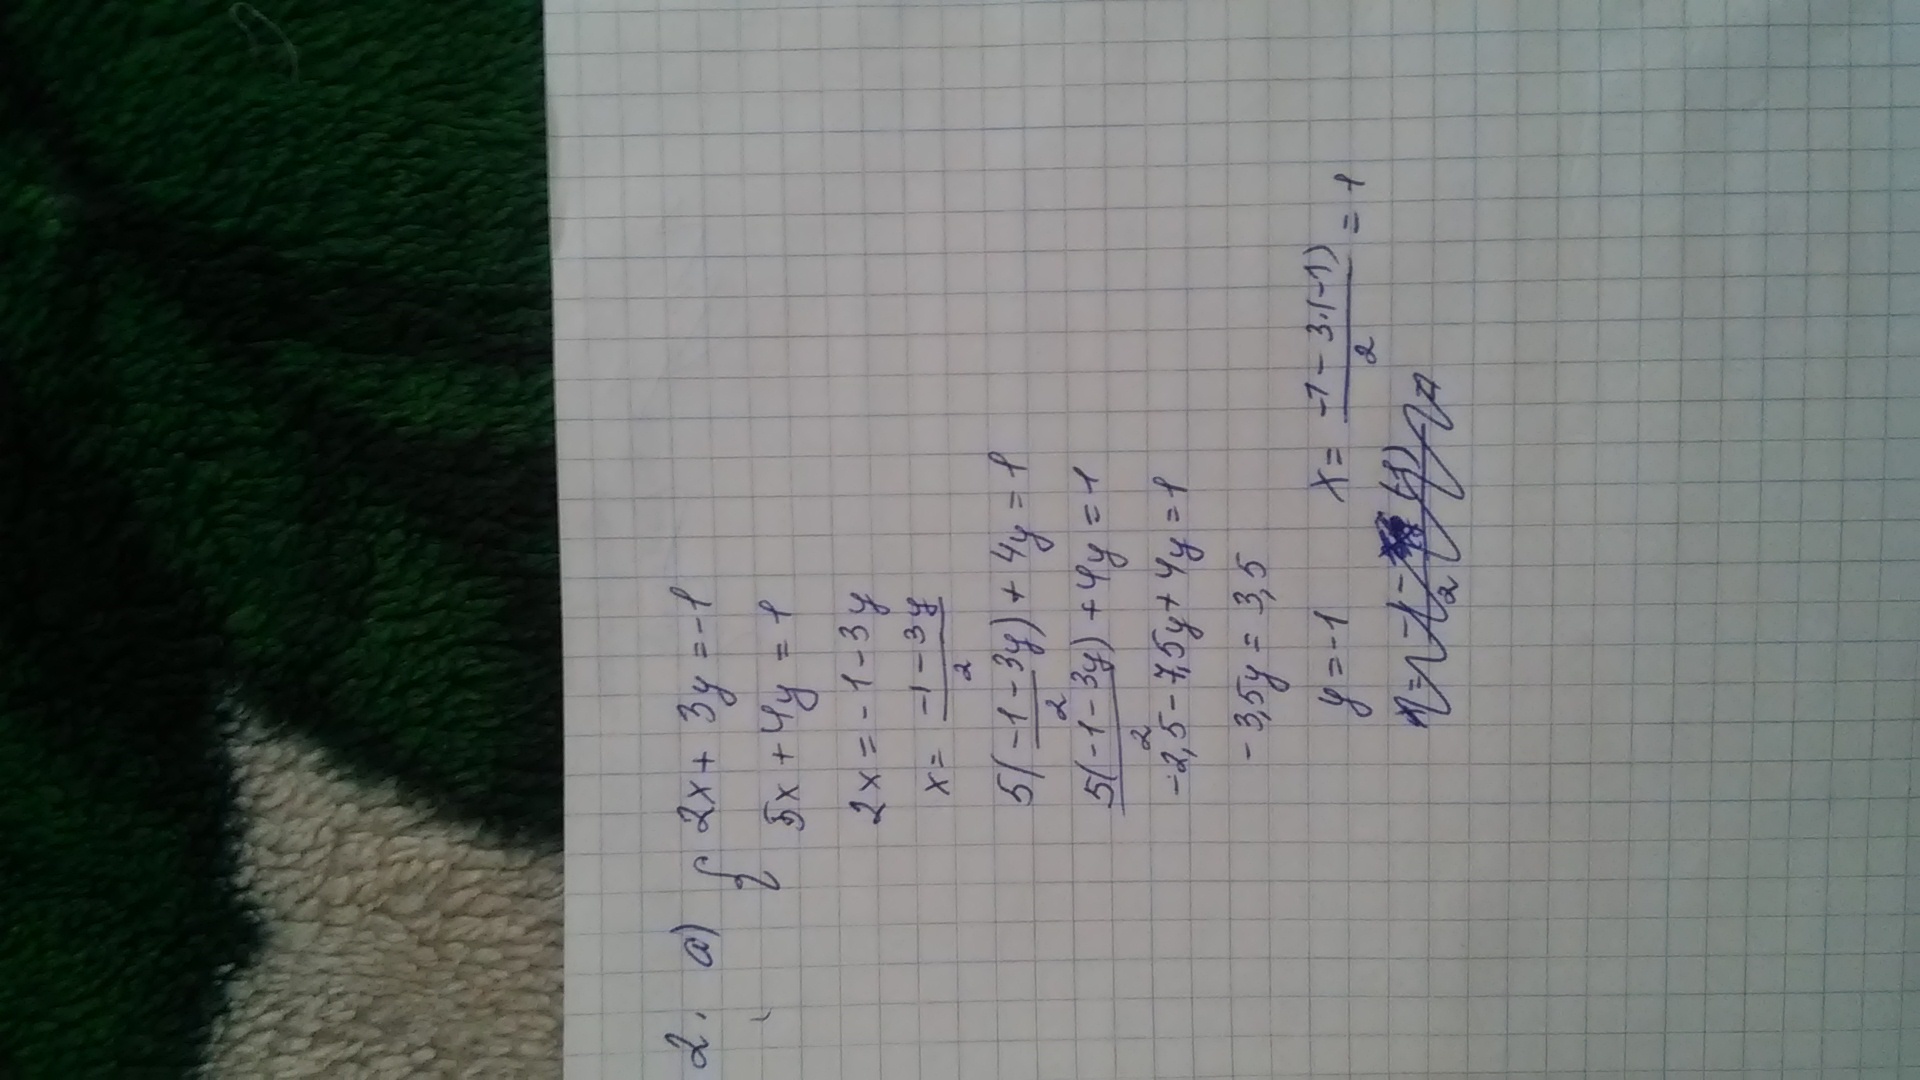 2. а) { 2x + 3y = -1
5x + 4y = 1
2x = -1 - 3y
x = (-1 - 3y)/2
5((-1 - 3y)/2) + 4y = 1
5(-1 - 3y)/2 + 4y = 1
-2,5 - 7,5y + 4y = 1
-3,5y = 3,5
y = -1 x = (-1 - 3·(-1))/2 = 1